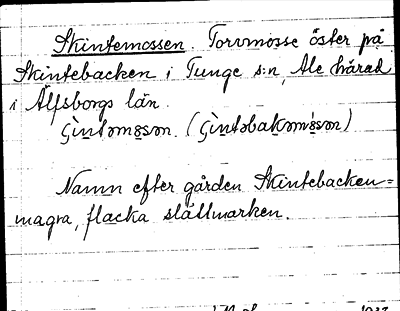 Skintemossen. Torvmosse öster på
Skintebacken i Tunge s:n, Ale härad
i Älfsborgs län.
Namn efter gården Skintebacken =
magra, flacka slåttmarken.